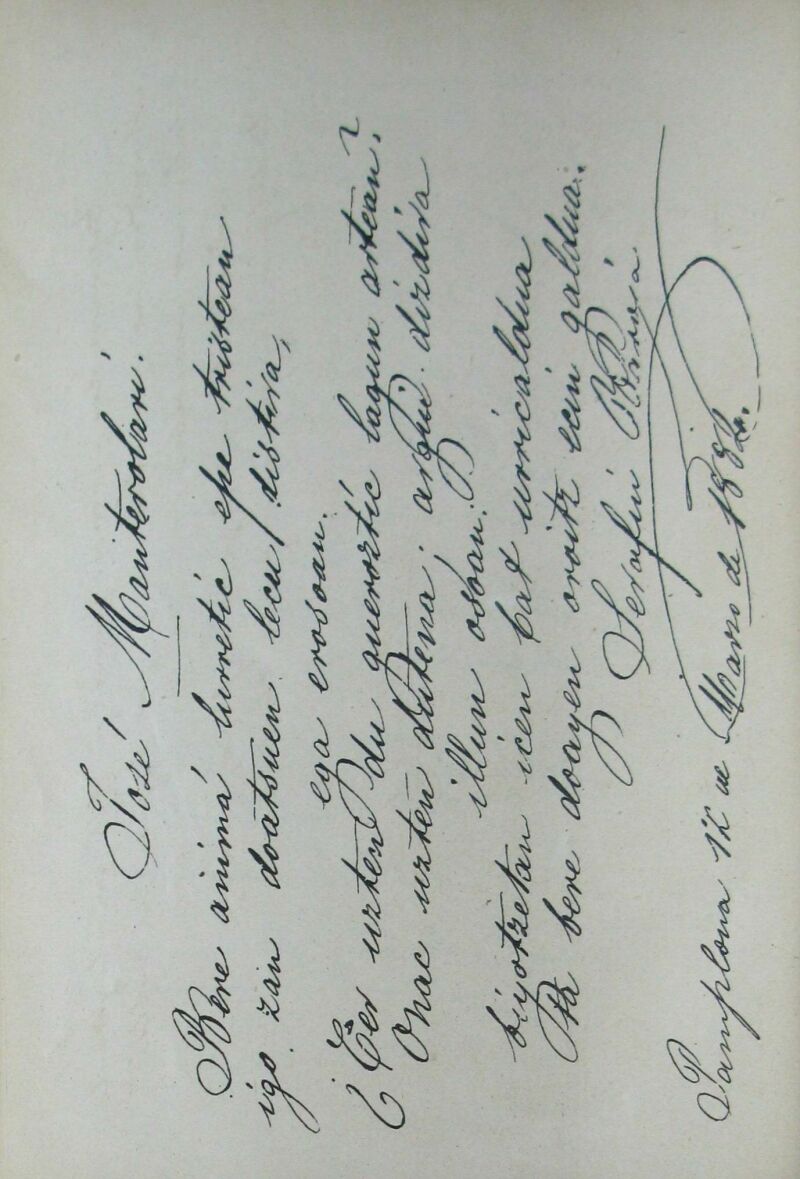 José Manterolari.
Bere animá lurretic epe tristean
igo zan doatsuen lecu distira,
ega erosoan.
¿Cer uzten du gueroztíc lagun artean?
Onac uzten dutena; arguí dizdira
illun osoan:
biyotzetan icen bat urricaldua
Ta bere doayen oroitz ecin galdua.
Serafin Baroja
Pamplona 12 de Marzo de 1884.